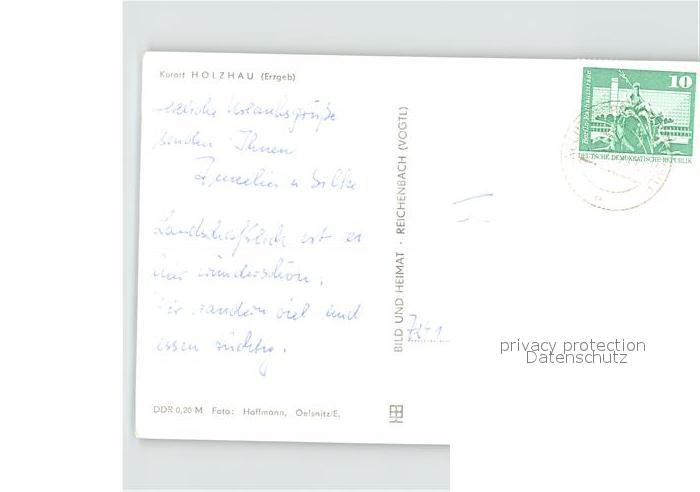 Kurort HOLZHAU (Erzgeb)
Urlaubsgrüße
senden Ihnen
Annelies u Silke
Landschaftlich ist es
hier wunderschön.
Wir wandern viel und
essen tüchtig.
DDR 0,20 M Foto: Hoffmann, Oelsnitz/E.
BILD UND HEIMAT · REICHENBACH (VOGTL)
10
Berlin, Rathausstraße
DEUTSCHE DEMOKRATISCHE REPUBLIK
privacy protection
Datenschutz